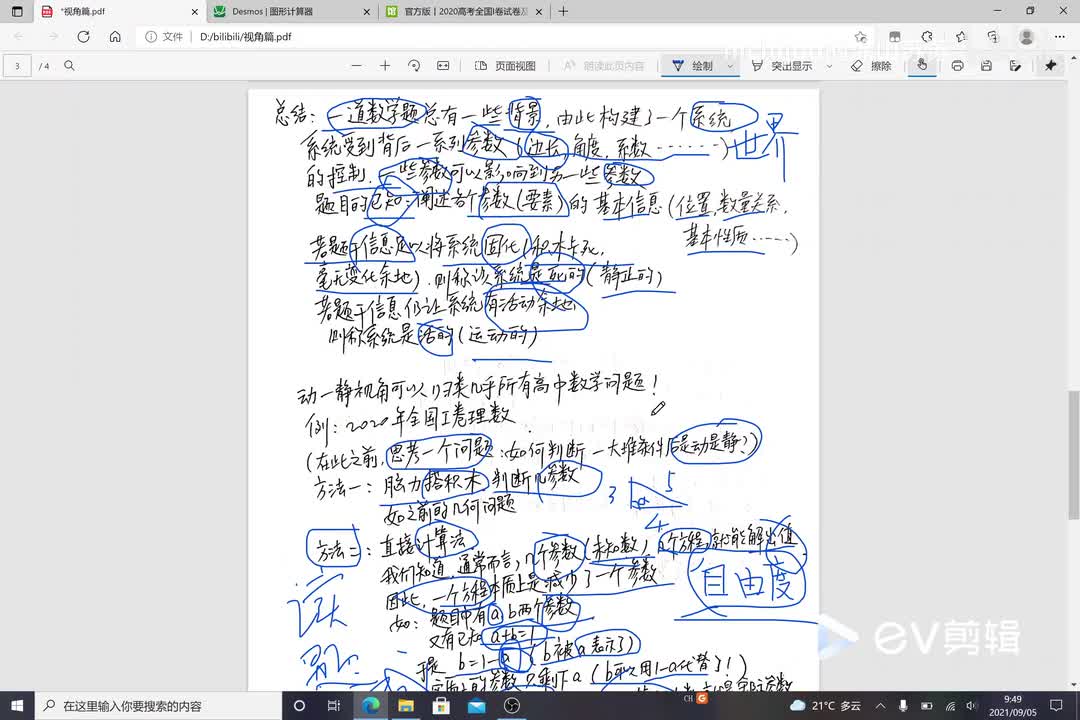 *视角篇.pdf
Desmos | 图形计算器
官方版 | 2020高考全国I卷试卷及
文件 D:/bilibili/视角篇.pdf
3 / 4
页面视图
朗读此页内容
绘制
突出显示
擦除
总结: 一道数学题总有一些背景, 由此构建了一个系统
世界
系统受到背后一系列参数 (边长, 角度, 系数 ……)
的控制, 一些参数可以影响到另一些参数
题目的已知: 阐述各个参数(要素)的基本信息 (位置, 数量关系,
基本性质……)
若题干信息足以将系统固化(积木卡死,
毫无变化余地), 则称该系统是死的 (静止的)
若题干信息仍让系统有活动余地,
则称系统是活的 (运动的)
动一静视角可以归类几乎所有高中数学问题!
例: 2020年全国I卷理数
(在此之前, 思考一个问题: 如何判断一大堆条件后是动是静?)
方法一: 脑力搭积木, 判断几参数
如之前的几何问题
3 5
4
方法二: 直接计算法.
我们知道, 通常而言, 几个参数 (未知数), 几个方程, 就能解出值
因此, 一个方程本质上是减少了一个参数
自由度
如: 题目中有a, b两个参数
又有已知 a+b=1
于是 b=1-a (b被a表示了)
实质上的参数只剩下a (b可以用1-a代替了)
EV剪辑
在这里输入你要搜索的内容
CH
21°C 多云
9:49
2021/09/05